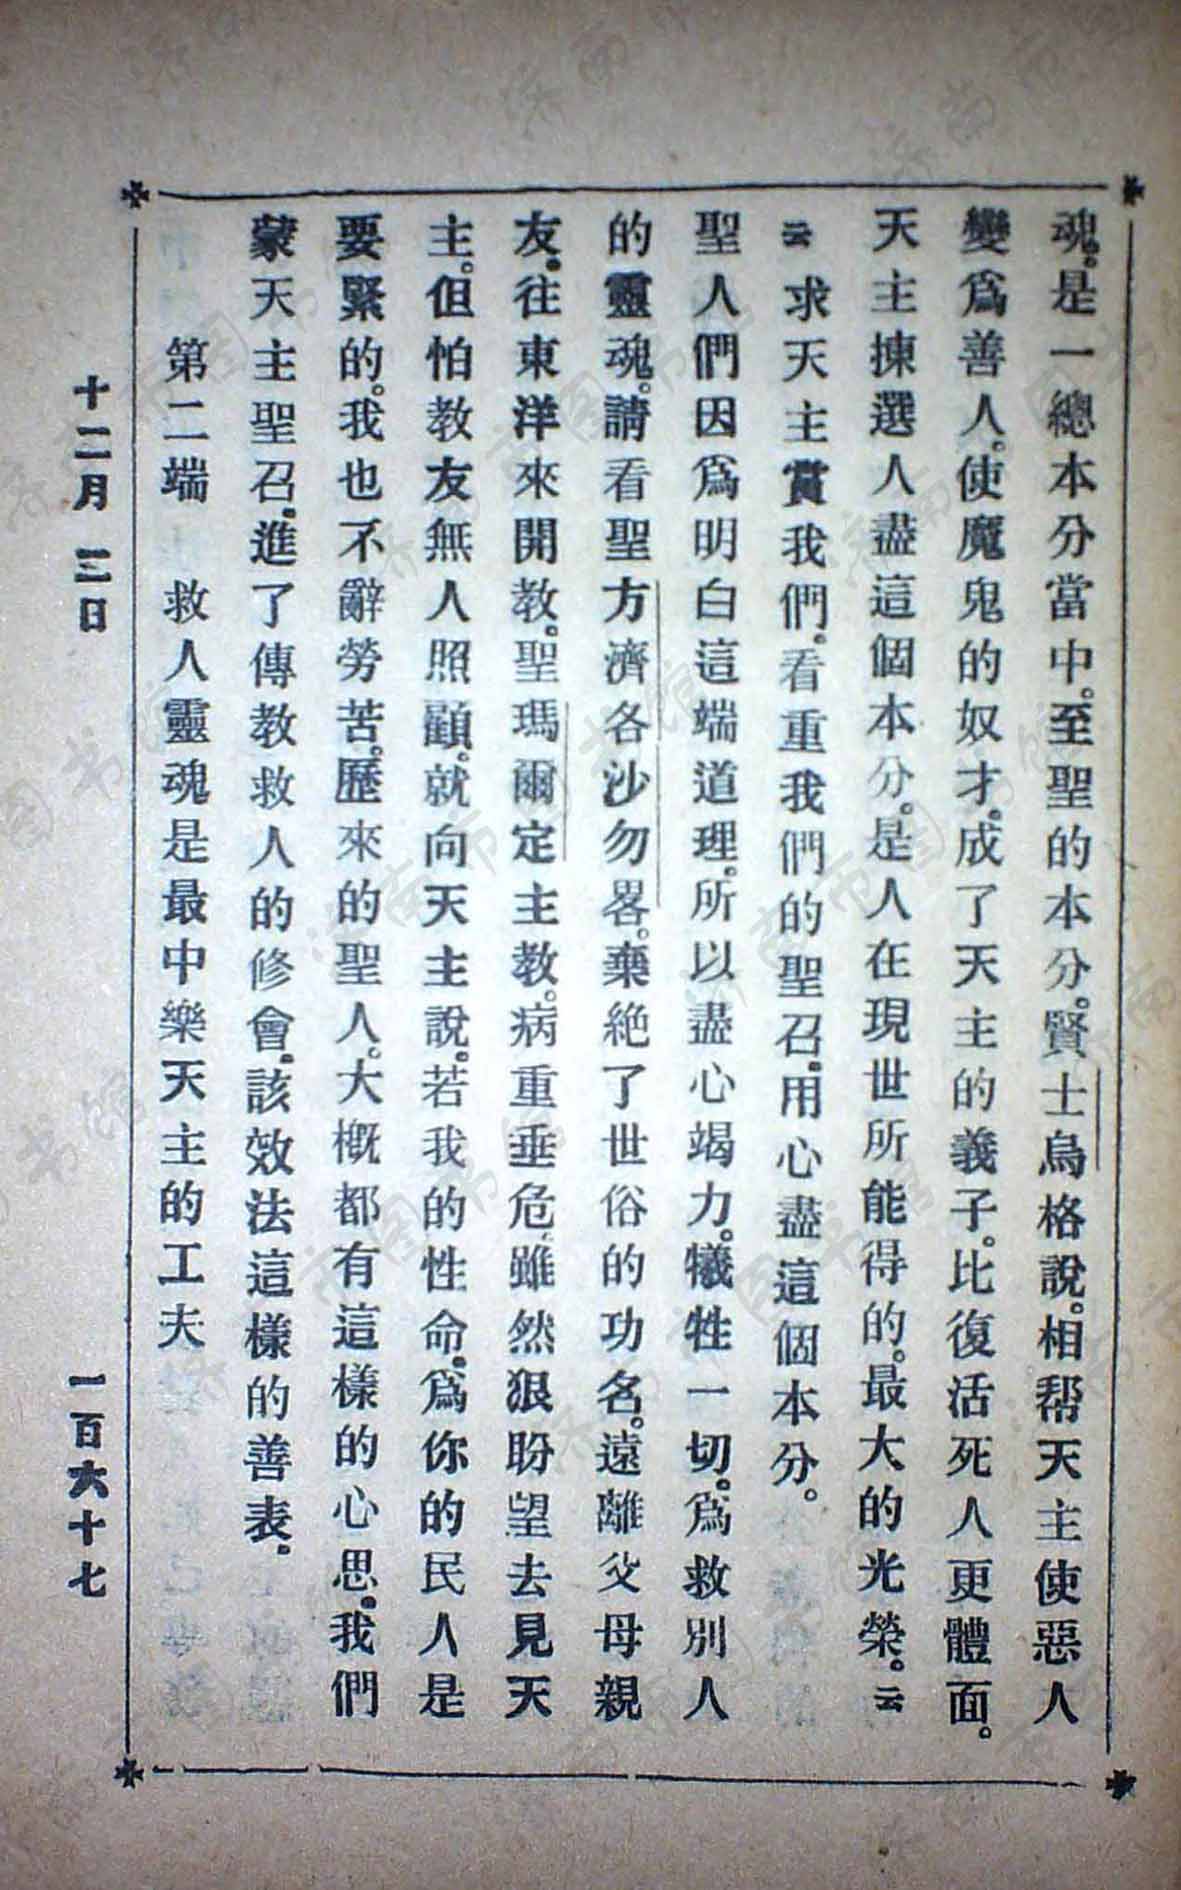 魂。是一總本分當中。至聖的本分。賢士烏格說。相帮天主使惡人
變爲善人。使魔鬼的奴才。成了天主的義子。比復活死人更體面。
天主揀選人盡這個本分。是人在現世所能得的。最大的光榮。云
云求天主賞我們。看重我們的聖召。用心盡這個本分。
聖人們因爲明白這端道理。所以盡心竭力。犧牲一切。爲救別人
的靈魂。請看聖方濟各沙勿畧。棄絕了世俗的功名。遠離父母親
友。往東洋來開教。聖瑪爾定主教。病重垂危。雖然狠盼望去見天
主。但怕教友無人照顧。就向天主說。若我的性命。爲你的民人是
要緊的。我也不辭勞苦。歷來的聖人。大概都有這樣的心思。我們
蒙天主聖召。進了傳教救人的修會。該效法這樣的善表。
第二端 救人靈魂是最中樂天主的工夫
十二月 三日 一百六十七
济南市图书馆